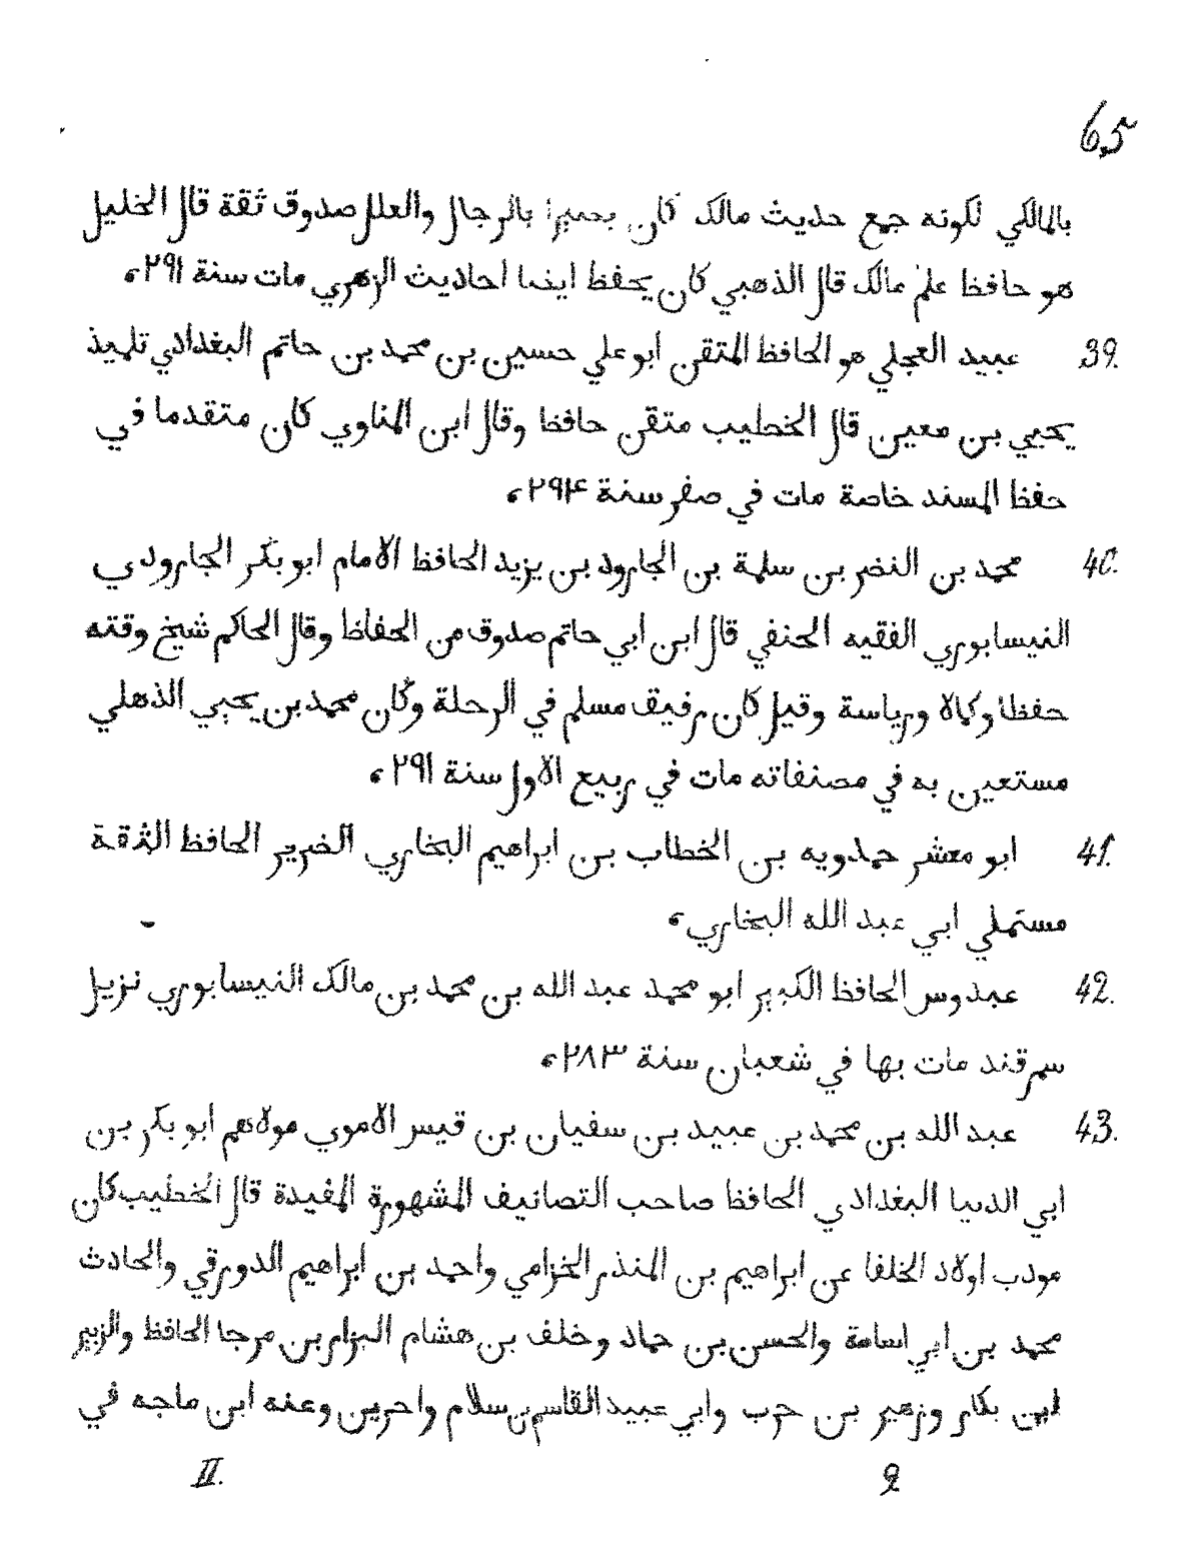 65
بالمالكي لكونه جمع حديث مالك كان بصيرا بالرجال والعلل صدوق ثقة قال الخليل
هو حافظ علم مالك قال الذهبي كان يحفظ ايضا احاديث الزهري مات سنة ٢٩١،
39. عبيد العجلي هو الحافظ المتقن ابو علي حسين بن محمد بن حاتم البغدادي تلميذ
يحيي بن معين قال الخطيب متقن حافظا وقال ابن المناوي كان متقدما في
حفظ المسند خاصة مات في صفر سنة ٢٩۴،
40. محمد بن النضر بن سلمة بن الجارود بن يزيد الحافظ الامام ابو بكر الجارودي
النيسابوري الفقيه الحنفي قال ابن ابي حاتم صدوق من الحفاظ وقال الحاكم شيخ وقته
حفظا وكمالا ورياسة وقيل كان رفيق مسلم في الرحلة وكان محمد بن يحيي الذهلي
مستعين به في مصنفاته مات في ربيع الاول سنة ٢٩١،
41. ابو معشر حمدويه بن الخطاب بن ابراهيم البخاري الضرير الحافظ الثقة
مستملي ابي عبد الله البخاري،
42. عبدوس الحافظ الكبير ابو محمد عبد الله بن محمد بن مالك النيسابوري نزيل
سمرقند مات بها في شعبان سنة ٢٨٣،
43. عبد الله بن محمد بن عبيد بن سفيان بن قيس الاموي مولاهم ابو بكر بن
ابي الدنيا البغدادي الحافظ صاحب التصانيف المشهورة المفيدة قال الخطيب كان
مودب اولاد الخلفا عن ابراهيم بن المنذر الخزامي واحمد بن ابراهيم الدورقي والحادث
محمد بن ابي اسامة والحسن بن حماد وخلف بن هشام البزار بن مرجا الحافظ والزبير
ابن بكار وزهير بن حرب وابي عبيد القاسم بن سلام واخرين وعنه ابن ماجه في
II. 9